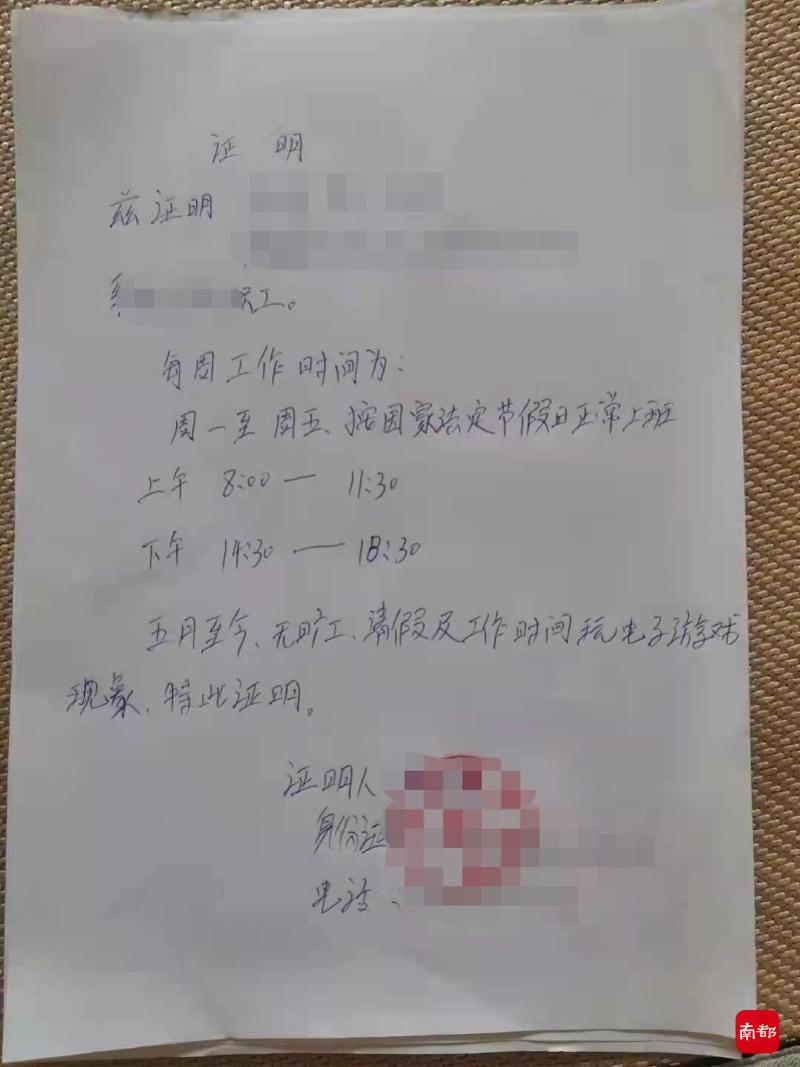 证 明
兹证明
系 员工。
每周工作时间为：
周一至周五、按国家法定节假日正常上班
上午 8:00 — 11:30
下午 14:30 — 18:30
五月至今、无旷工、请假及工作时间玩电子游戏
现象、特此证明。
证明人
身份证
电话、
南都